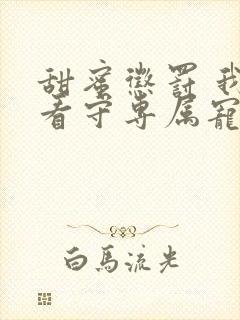 甜蜜懲罰 我
看守專属寵
白馬流光